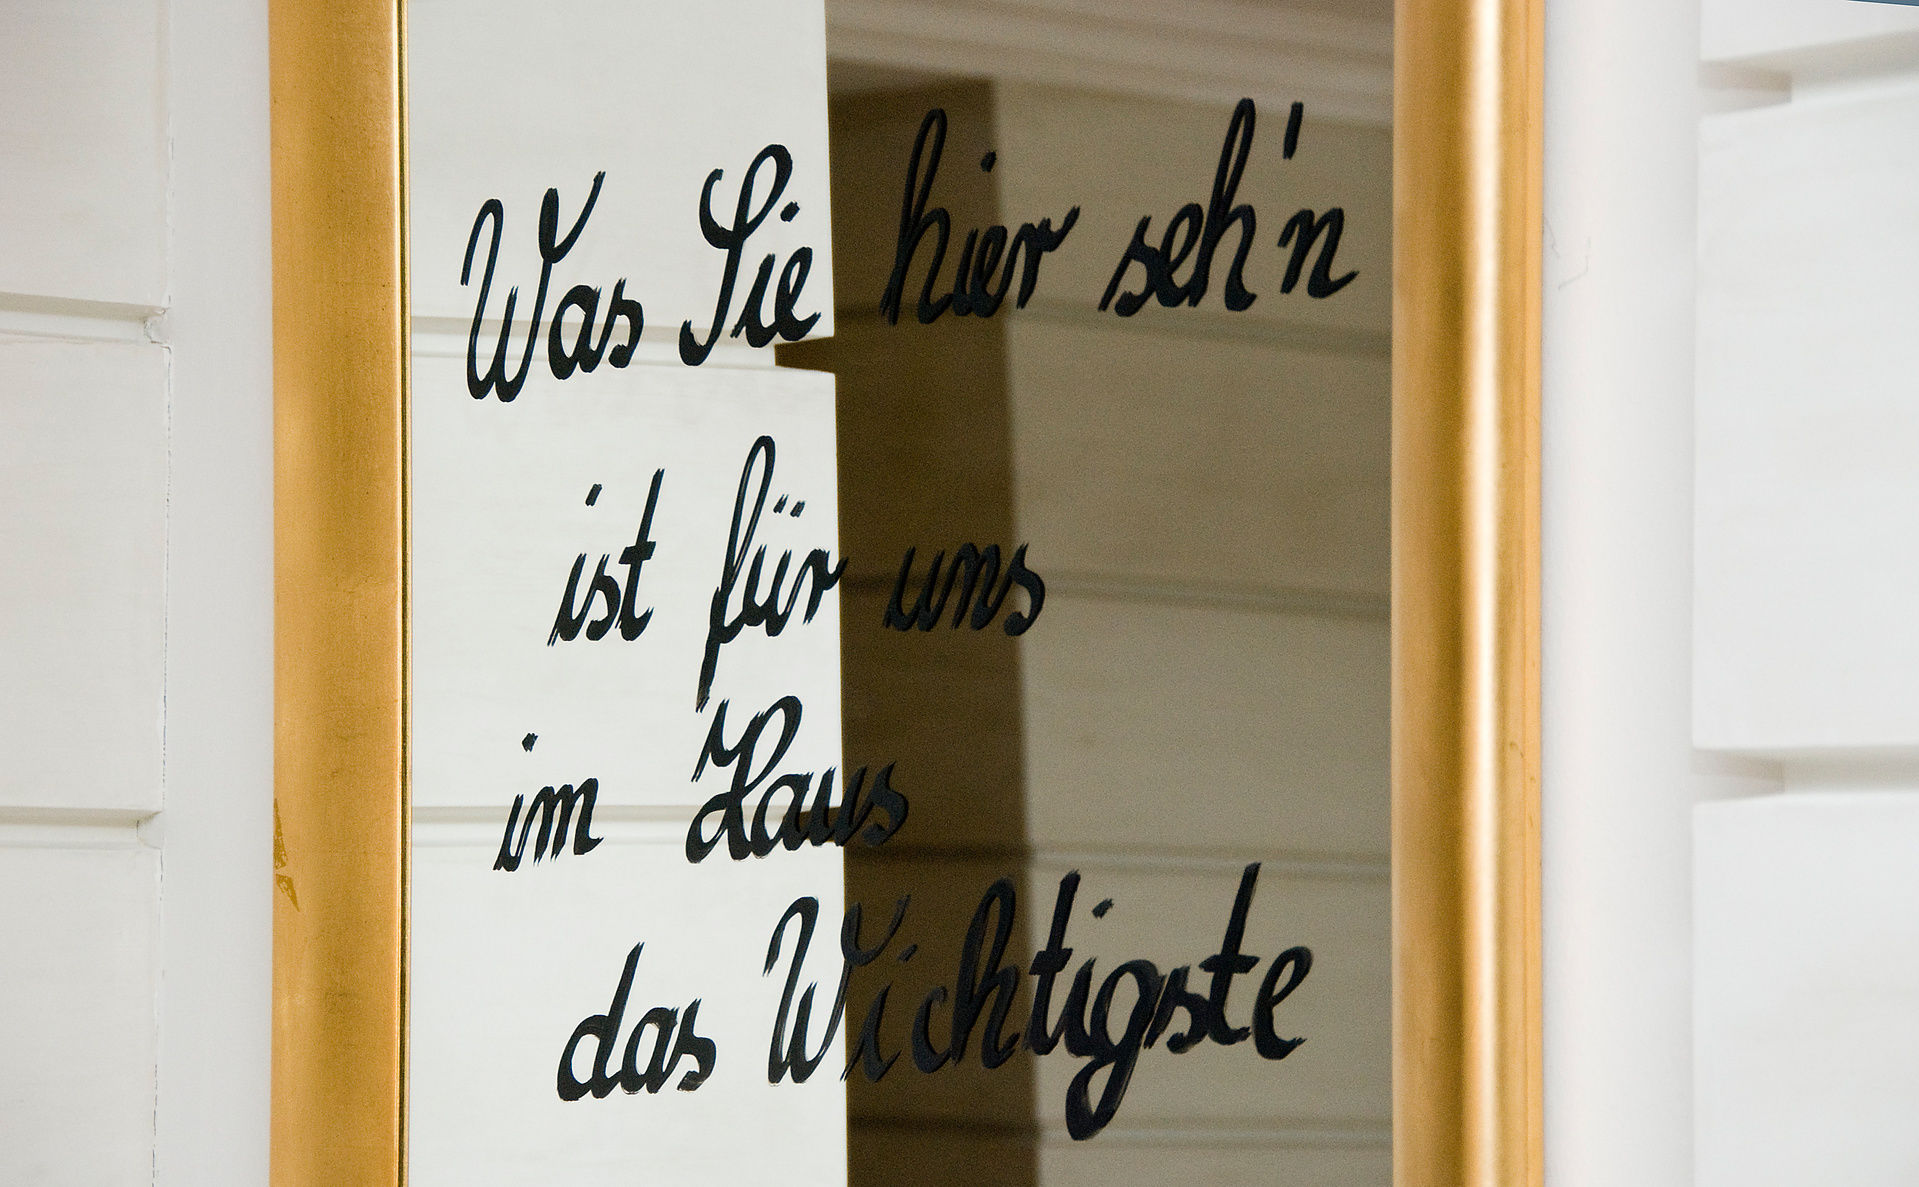 Was Sie hier seh'n
ist für uns
im Haus
das Wichtigste